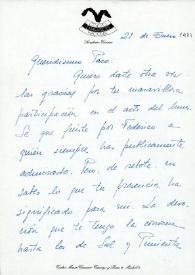 21 de Enero 1981
Queridísimo Paco:
Quiero darte otra vez
las gracias por tu maravillosa
participación en el acto del lunes.
Sé que fuiste por Federico a
quién siempre has publicamente
admirado. Pero, de rebote, no
sabes lo que tu presencia ha
significado para mí. La devo-
ción que te tengo la conocen
hasta los de Sol y Poniente